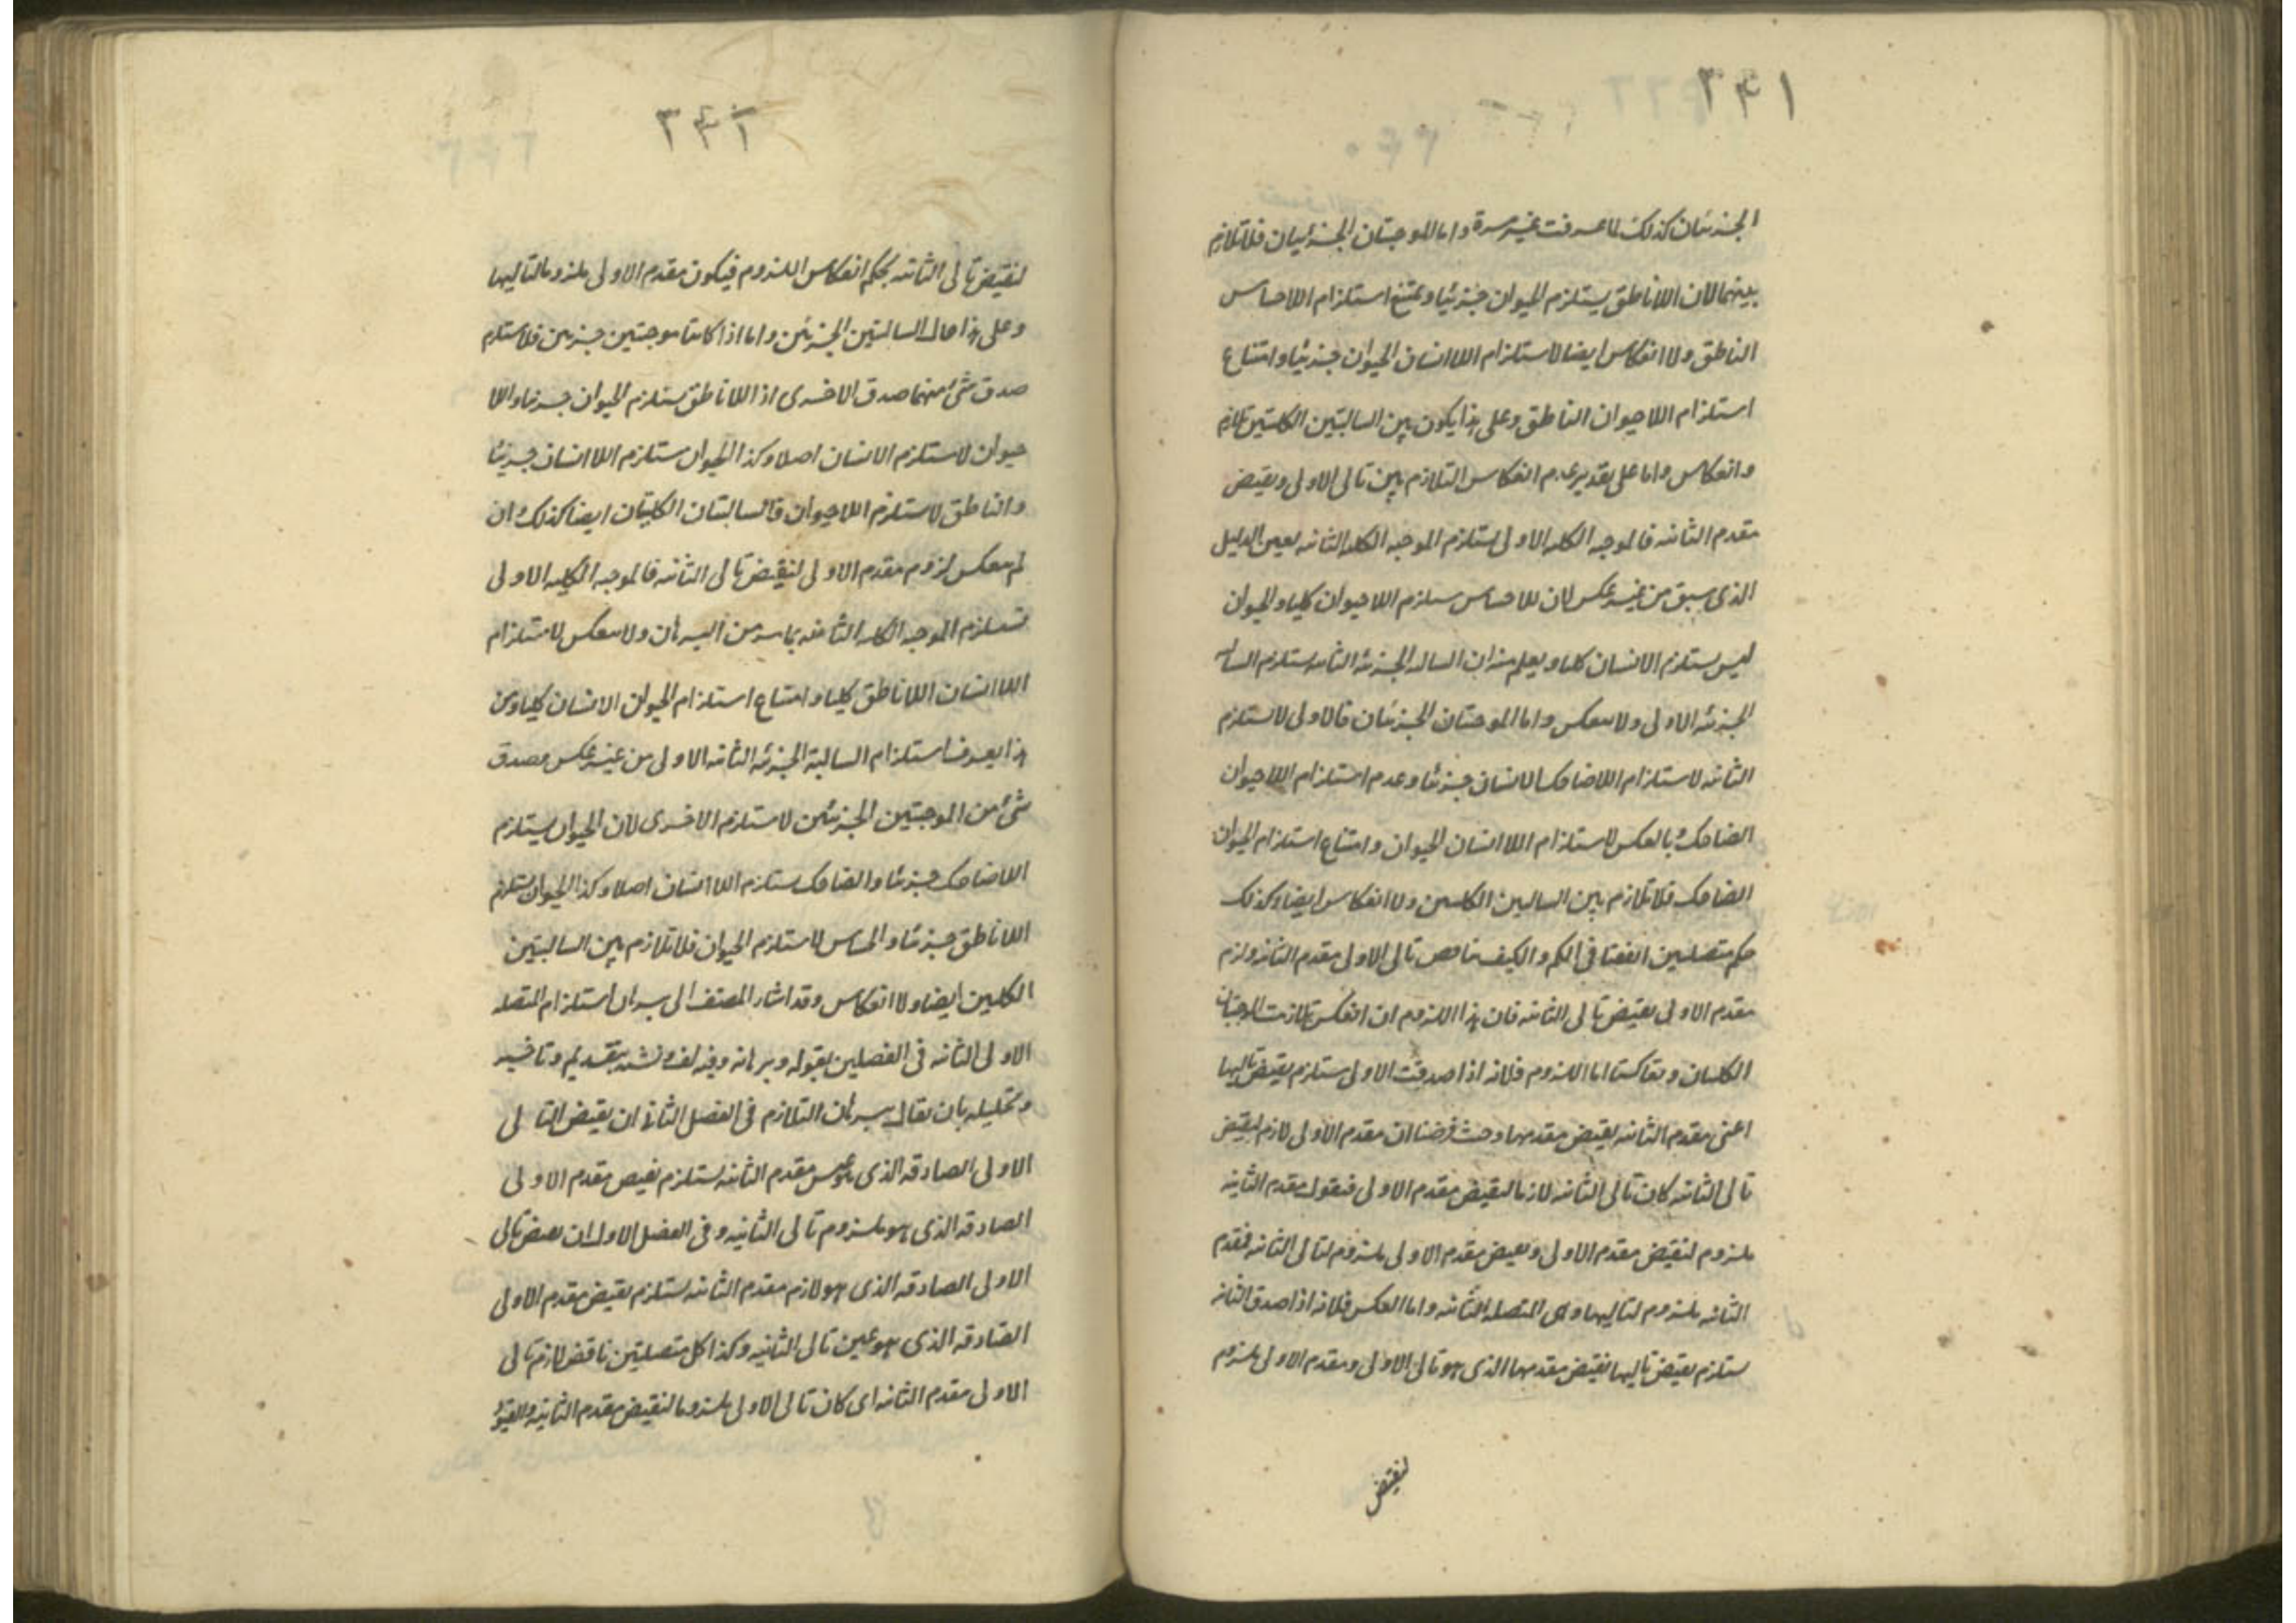 ٣٤١
الجزئيتان كذلك لما عرفت غير مرة واما الموجبتان الجزئيتان فلا تلازم
بينهما لان اللاناطق يستلزم الحيوان جزئيا ويمتنع استلزام اللاحساس
الناطق ولا انعكاس ايضا لاستلزام اللاانسان الحيوان جزئيا وامتناع
استلزام اللاحيوان الناطق وعلى هذا يكون بين السالبتين الكليتين تلازم
وانعكاس واما على تقدير عدم انعكاس التلازم بين تالى الاولى ونقيض
مقدم الثانيه فالموجبه الكليه الاولى يستلزم الموجبه الكليه الثانيه بعين الدليل
الذى سبق من غير عكس لان اللاحساس يستلزم اللاحيوان كليا والحيوان
ليس يستلزم الانسان كليا ويعلم منه ان السالبه الجزئيه الثانيه يستلزم السالبه
الجزئيه الاولى ولا ينعكس واما الموجبتان الجزئيتان فالاولى لا يستلزم
الثانيه لاستلزام اللاضاحك الانسان جزئيا وعدم استلزام اللاحيوان
الضاحك وبالعكس لاستلزام اللاانسان الحيوان وامتناع استلزام الحيوان
الضاحك فلا تلازم بين السالبتين الكليتين ولا انعكاس ايضا وكذلك
حكم متصلتين اتفقتا فى الكم والكيف وناقض تالى الاولى مقدم الثانيه ولزم
مقدم الاولى نقيض تالى الثانيه فان هذا اللزوم ان انعكس تلازمت الموجبتان
الكليتان وتعاكستا اما اللزوم فلانه اذا صدقت الاولى يستلزم نقيض تاليها
اعنى مقدم الثانيه نقيض مقدمها وحيث فرضنا ان مقدم الاولى لازم لنقيض
تالى الثانيه كان تالى الثانيه لازما لنقيض مقدم الاولى فنقول مقدم الثانيه
ملزوم لنقيض مقدم الاولى ونقيض مقدم الاولى ملزوم لتالى الثانيه فمقدم
الثانيه ملزوم لتاليها وهى المتصله الثانيه واما العكس فلانه اذا صدق الثانيه
يستلزم نقيض تاليها نقيض مقدمها الذى هو تالى الاولى ومقدم الاولى ملزوم
لنقيض
٣٤٢
لنقيض تالى الثانيه بحكم انعكاس اللزوم فيكون مقدم الاولى ملزوما لتاليها
وعلى هذا حال السالبتين الجزئيتين واما اذا كانتا موجبتين جزئيتين فلا يستلزم
صدق شئ منهما صدق الاخرى اذ اللاناطق يستلزم الحيوان جزئيا واللا
حيوان لا يستلزم الانسان اصلا وكذا الحيوان يستلزم اللاانسان جزئيا
والناطق لا يستلزم اللاحيوان فالسالبتان الكليتان ايضا كذلك وان
لم ينعكس لزوم مقدم الاولى لنقيض تالى الثانيه فالموجبه الكليه الاولى
تستلزم الموجبه الكليه الثانيه بما مر من البرهان ولا ينعكس لاستلزام
اللاانسان اللاناطق كليا وامتناع استلزام الحيوان الانسان كليا ومن
هذا يعرف استلزام السالبة الجزئيه الثانيه الاولى من غير عكس وصدق
شئ من الموجبتين الجزئيتين لا يستلزم الاخرى لان الحيوان يستلزم
اللاضاحك جزئيا والضاحك يستلزم اللاانسان اصلا وكذا الحيوان يستلزم
اللاناطق جزئيا والحساس لا يستلزم الحيوان فلا تلازم بين السالبتين
الكليتين ايضا ولا انعكاس وقد اشار المصنف الى برهان استلزام المتصله
الاولى الثانيه فى الفصلين بقوله وبرهانه وفيه لف ونشر بتقديم وتاخير
وتحليله بان يقال برهان التلازم فى الفصل الثانى ان نقيض التالى
الاولى الصادقه الذى هو عين مقدم الثانيه يستلزم نقيض مقدم الاولى
الصادقه الذى هو ملزوم تالى الثانيه وفى الفصل الاول ان نقيض تالى
الاولى الصادقه الذى هو لازم مقدم الثانيه يستلزم نقيض مقدم الاولى
الصادقه الذى هو عين تالى الثانيه وكذا كل متصلتين ناقض لازم تالى
الاولى مقدم الثانيه اى كان تالى الاولى ملزوما لنقيض مقدم الثانيه